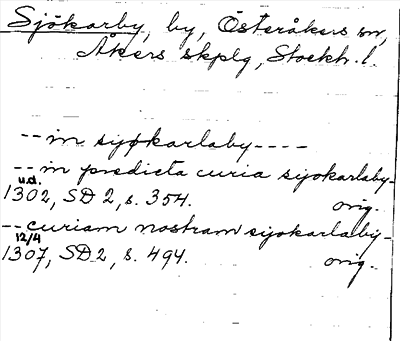 Sjökarby, by, Österåkers sn,
Åkers skplg, Stockh. l.
-- in sijøkarlaby ----
-- in predicta curia sijokarlaby-
u.d.
1302, SD 2, s. 354. orig.
-- curiam nostram sijokarlaby-
12/4
1307, SD 2, s. 494. orig.